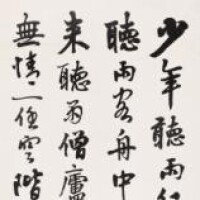 少年聽雨
聽雨客舟中
來聽雨僧廬
無情一任雲階